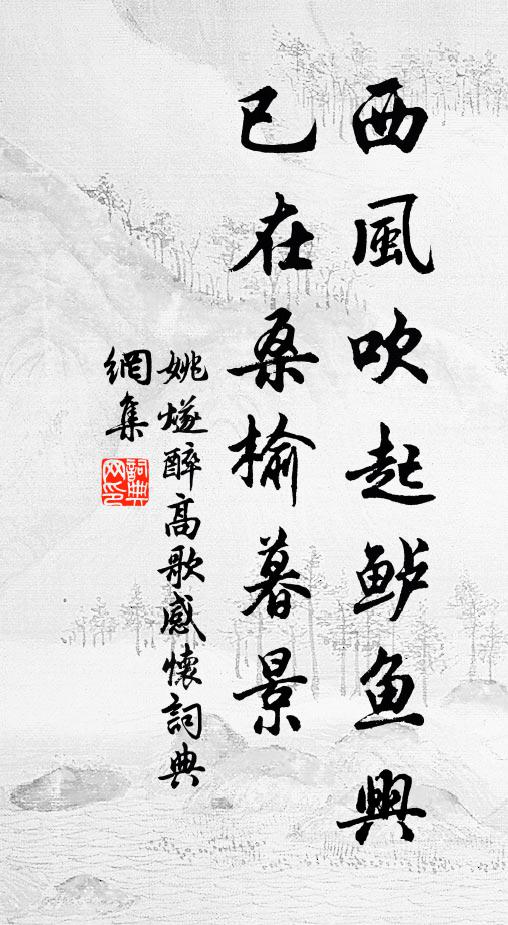 西風吹起鲈鱼興
已在桑榆暮景
姚燧醉高歌感懷詞典
網集
詞典
网印